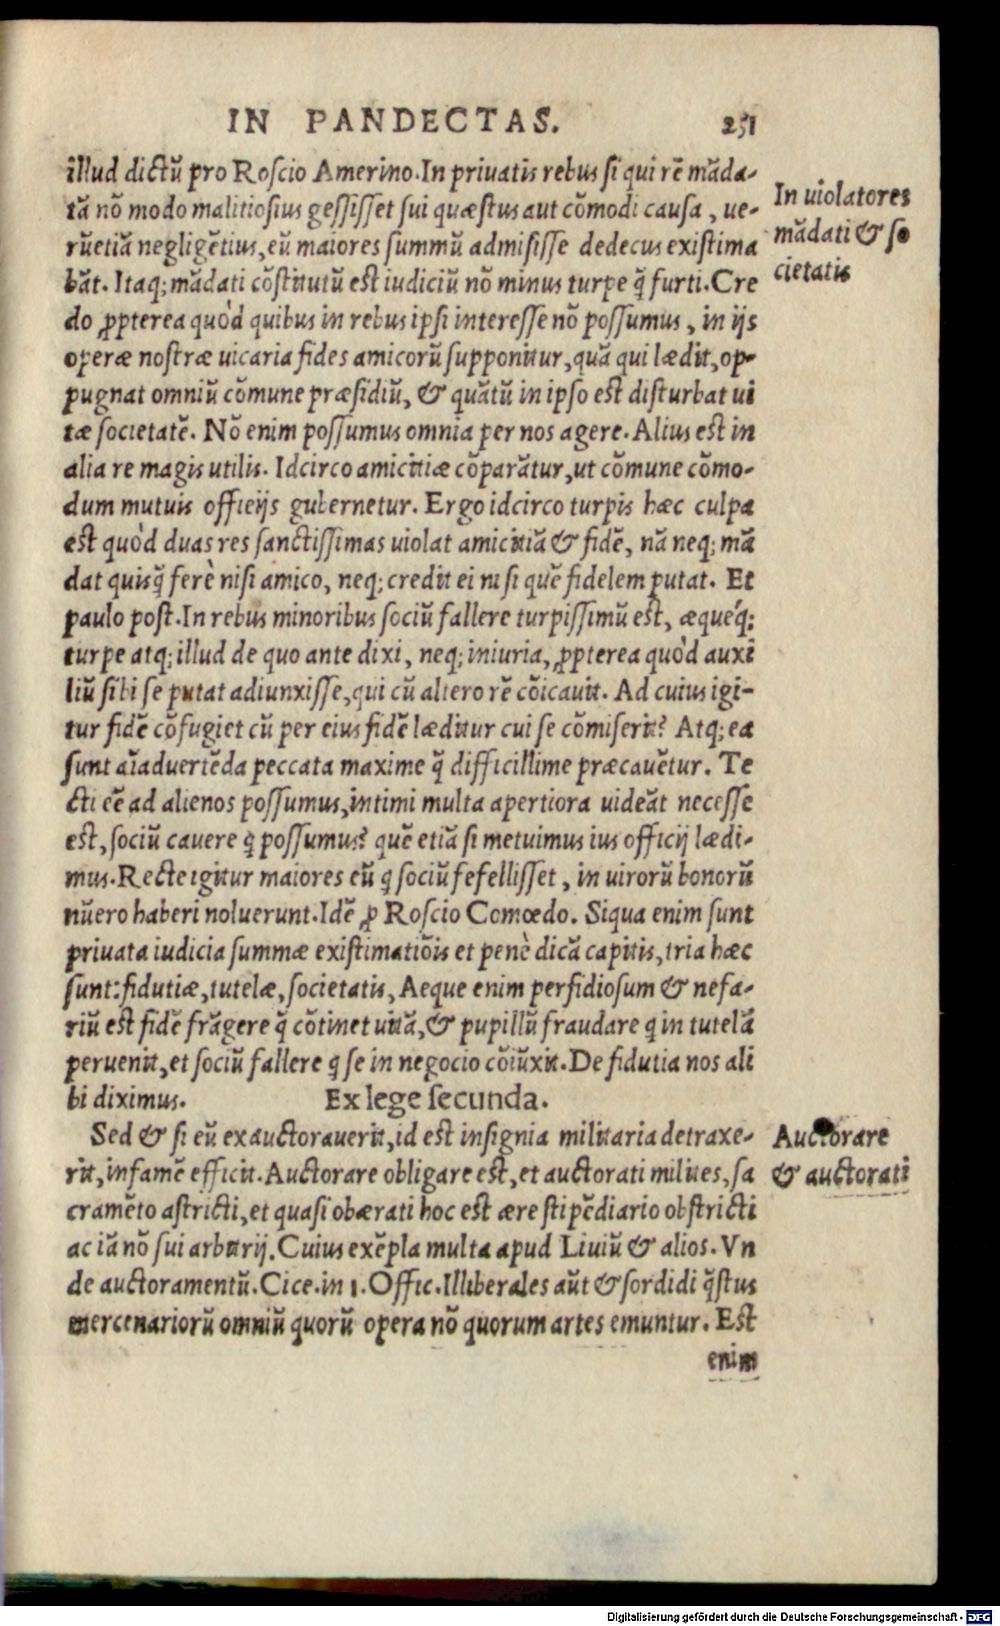 IN PANDECTAS. 251
illud dictũ pro Roscio Amerino. In privatis rebus si qui rẽ mãda-
tã nõ modo malitiosius gessisset sui quæstus aut cõmodi causa, ue-
rũetiã negligẽtius, eũ maiores summũ admisisse dedecus existima
bãt. Itaq; mãdati cõstitutũ est iudiciũ nõ minus turpe q̃ furti. Cre
do ꝓpterea quòd quibus in rebus ipsi interesse nõ possumus, in ijs
operæ nostræ uicaria fides amicorũ supponitur, quã qui lædit, op-
pugnat omniũ cõmune præsidiũ, & quãtũ in ipso est disturbat ui
tæ societatẽ. Nõ enim possumus omnia per nos agere. Alius est in
alia re magis utilis. Idcirco amicitiæ cõparãtur, ut cõmune cõmo-
dum mutuis officijs gubernetur. Ergo idcirco turpis hæc culpa
est quòd duas res sanctissimas uiolat amicitiã & fidẽ, nã neq; mã
dat quisq̃ ferè nisi amico, neq; credit ei nisi quẽ fidelem putat. Et
paulo post. In rebus minoribus sociũ fallere turpissimũ est, æqueq́;
turpe atq; illud de quo ante dixi, neq; iniuria, ꝓpterea quòd auxi
liũ sibi se putat adiunxisse, qui cũ altero rẽ cõicauit. Ad cuius igi-
tur fidẽ cõfugiet cũ per eius fidẽ læditur cui se cõmiserit? Atq; ea
sunt aĩaduertẽda peccata maxime q̃ difficillime præcauẽtur. Te
cti eẽ ad alienos possumus, intimi multa apertiora uideãt necesse
est, sociũ cauere q̃ possumus? quẽ etiã si metuimus ius officij lædi-
mus. Recte igitur maiores eũ q̃ sociũ fefellisset, in uirorũ bonorũ
nũero haberi noluerunt. Idẽ ꝓ Roscio Comœdo. Siqua enim sunt
privata iudicia summæ existimatiõis et penè dicã capitis, tria hæc
sunt: fidutiæ, tutelæ, societatis, Aeque enim perfidiosum & nefa-
riũ est fidẽ frãgere q̃ cõtinet uitã, & pupillũ fraudare q̃ in tutelã
peruenit, et sociũ fallere q̃ se in negocio cõiũxit. De fidutia nos ali
bi diximus. Ex lege secunda.
Sed & si eũ exauctorauerit, id est insignia militaria detraxe-
rit, infamẽ efficit. Auctorare obligare est, et auctorati milites, sa
cramẽto astricti, et quasi obærati hoc est ære stipẽdiario obstricti
ac iã nõ sui arbitrij. Cuius exẽpla multa apud Liuiũ & alios. Vn
de auctoramentũ. Cice. in 1. Offic. Illiberales aũt & sordidi q̃stus
mercenariorũ omniũ quorũ opera nõ quorum artes emuntur. Est
enim
In uiolatores
mãdati & so
cietatis
Auctorare
& auctorati
Digitalisierung gefördert durch die Deutsche Forschungsgemeinschaft - DFG